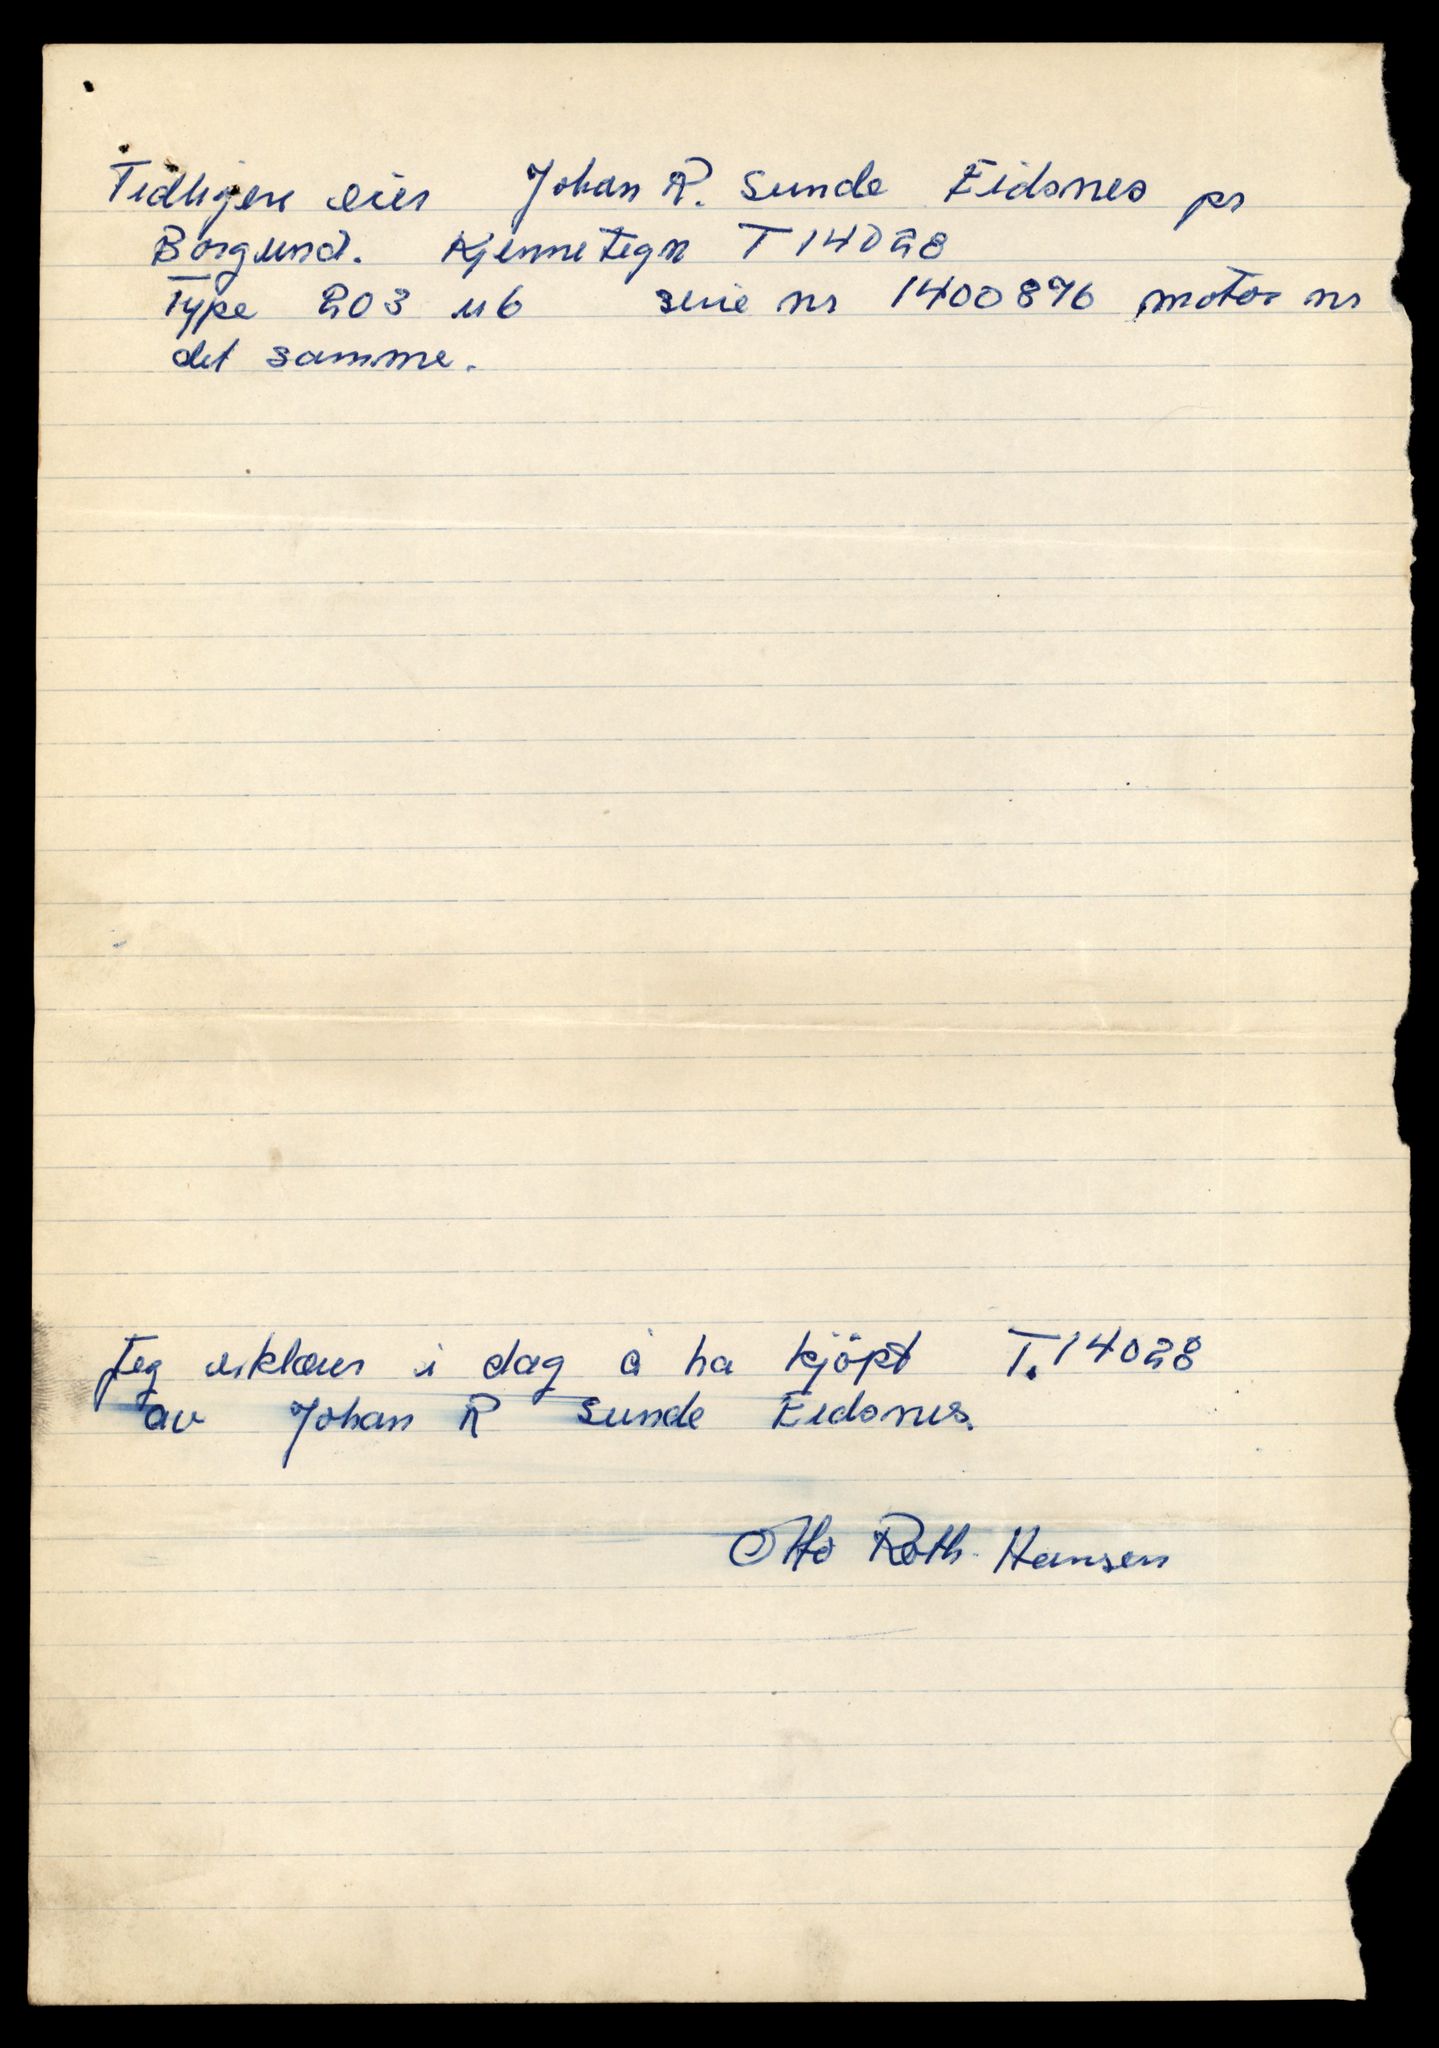 Tidligere eier Johan R. Sunde Eidsnes pr
Borgund. Kjennetegn T 14028
Type 203 u6 serie nr 1400896 motor nr
det samme.
Jeg erklærer i dag å ha kjöpt T. 14028
av Johan R Sunde Eidsnes.
Otto Roth-Hansen